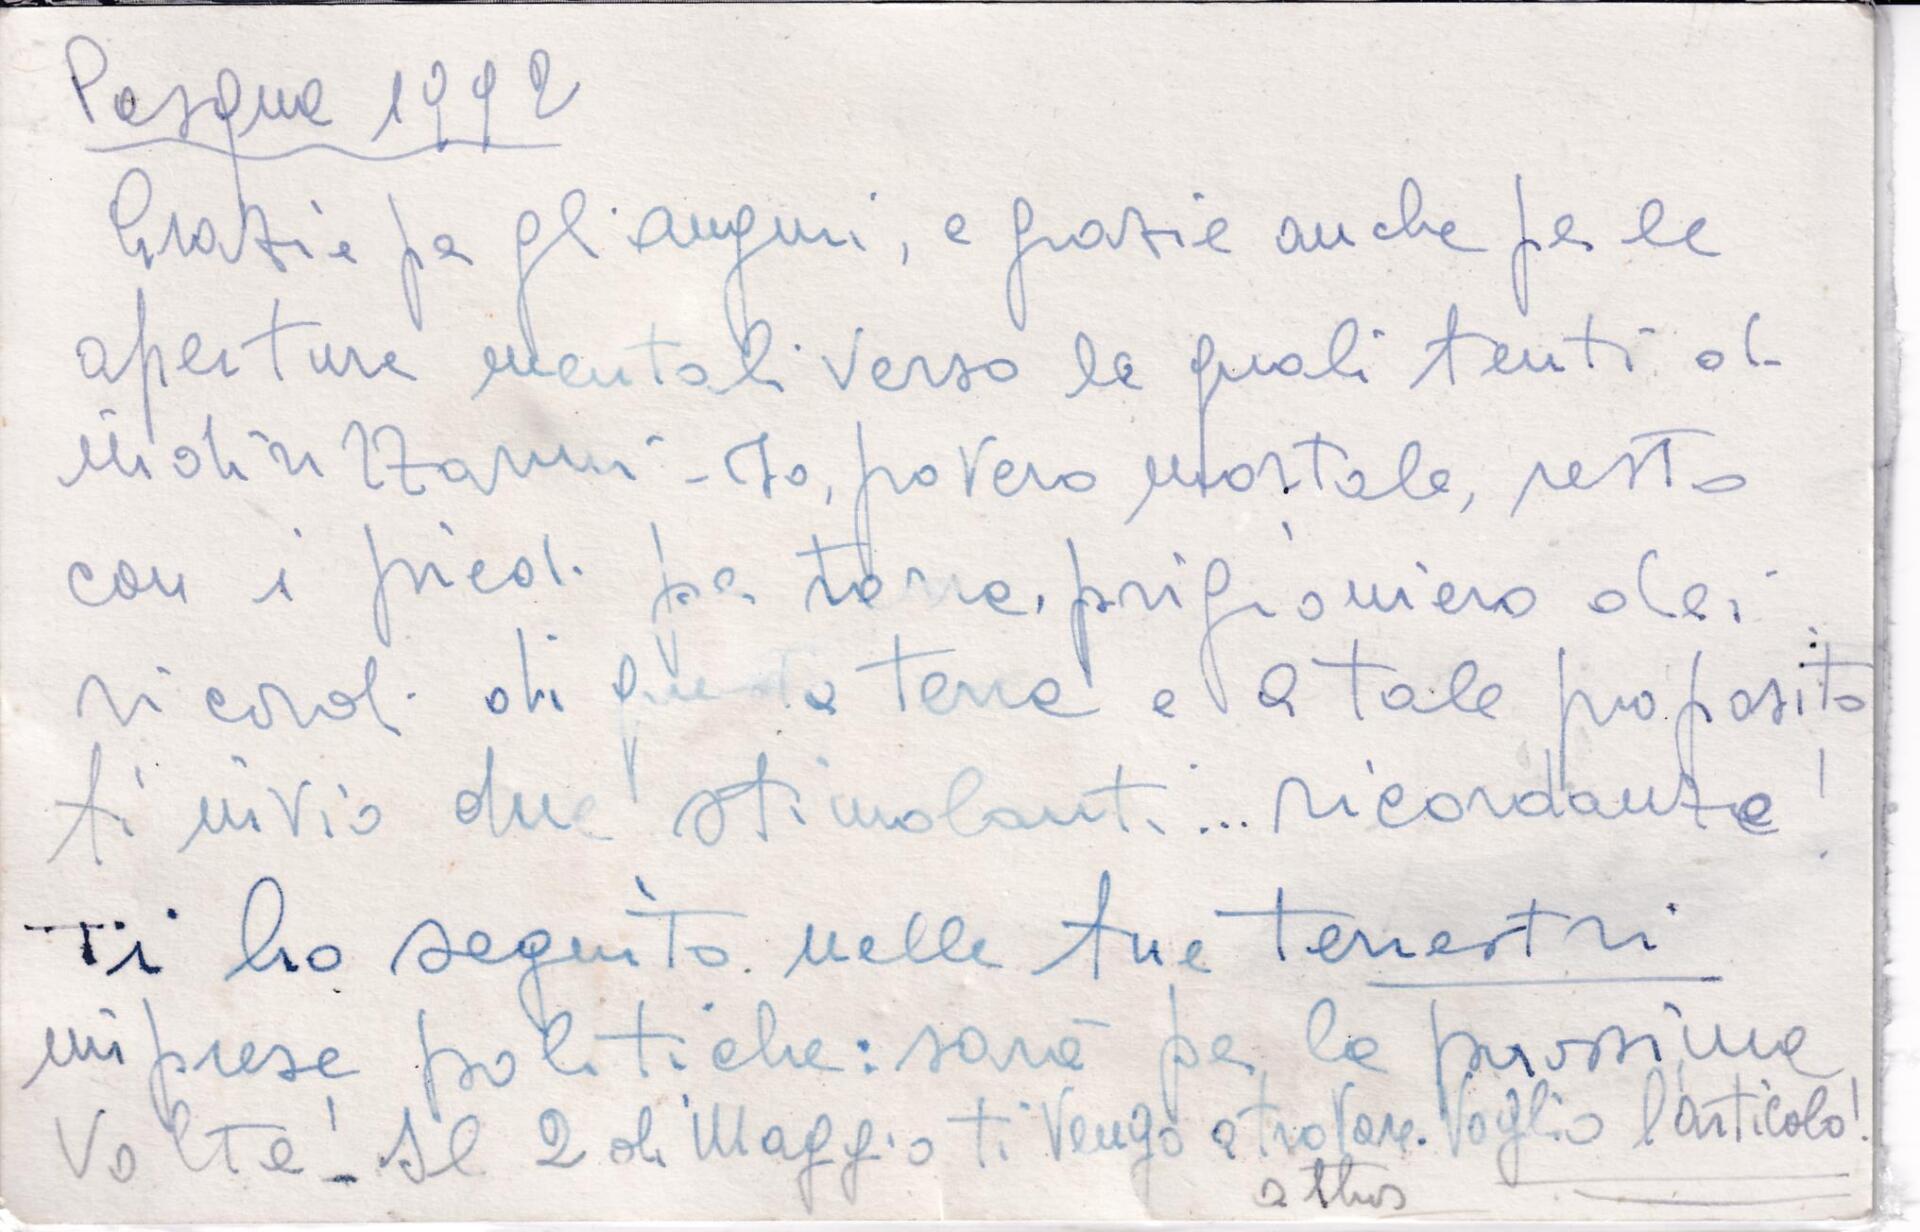 Pasqua 1992
Grazie per gli auguri, e grazie anche per le
aperture mentali verso le quali tenti di
indirizzarmi - Io, povero mortale, resto
con i piedi per terra, prigioniero dei
ricordi di questa terra e a tale proposito
ti invio due stimolanti... ricordanze!
Ti ho seguito nelle tue terrestri
imprese politiche: sarà per la prossima
volta! - Il 2 di Maggio ti vengo a trovare. Voglio l'articolo!
athos